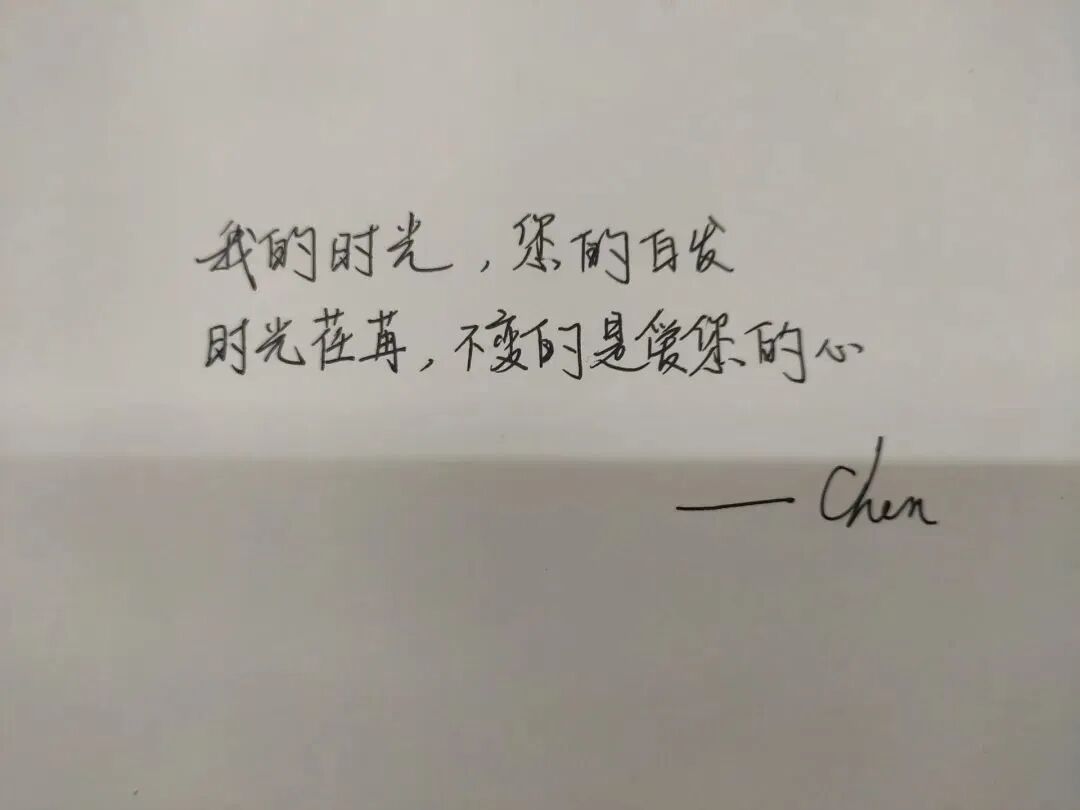 我的时光，您的白发
时光荏苒，不变的是爱您的心
——Chen